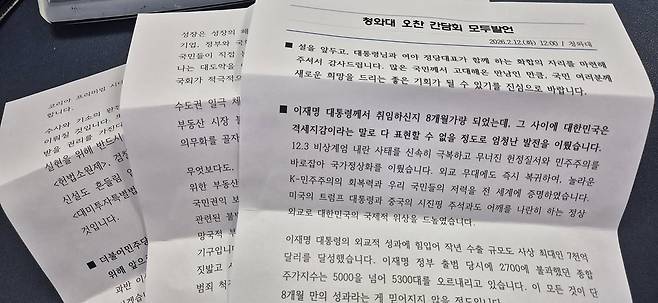 청와대 오찬 간담회 모두발언
2026.2.12.(화) 12:00 / 청와대
■ 설을 앞두고, 대통령님과 여야 정당대표가 함께 하는 화합의 자리를 마련해
주셔서 감사드립니다. 많은 국민께서 고대해온 만남인 만큼, 국민 여러분께
새로운 희망을 드리는 좋은 기회가 될 수 있기를 진심으로 바랍니다.
■ 이재명 대통령께서 취임하신지 8개월가량 되었는데, 그 사이에 대한민국은
격세지감이라는 말로 다 표현할 수 없을 정도로 엄청난 발전을 이뤘습니다.
12.3 비상계엄 내란 사태를 신속히 극복하고 무너진 헌정질서와 민주주의를
바로잡아 국가정상화를 이뤘습니다. 외교 무대에도 즉시 복귀하여, 놀라운
K-민주주의의 회복력과 우리 국민들의 저력을 전 세계에 증명하였습니다.
미국의 트럼프 대통령과 중국의 시진핑 주석과도 어깨를 나란히 하는 정상
외교로 대한민국의 국제적 위상을 드높였습니다.
이재명 대통령의 외교적 성과에 힘입어 작년 수출 규모도 사상 최대인 7천억
달러를 달성했습니다. 이재명 정부 출범 당시에 2700에 불과했던 종합
주가지수는 5000을 넘어 5300대를 오르내리고 있습니다. 이 모든 것이 단
8개월 만의 성과라는 게 믿어지지 않을 정도입니다.
성장은 성장의
기업, 정부와 국
국민들이 직접
나는 대도약을
국회가 적극적으
수도권 일극 체
부동산 시장
의무화를 골자
무엇보다도,
위한 부동산
국민권의 보
관련된 불
망국적 부
기구입니다
짓밟고 서
범죄 척
코리아 프리미엄 시
합니다.
수사와 기소의
이뤄질 것입니다.
받을 권리를
실현을 위해 반드시
<헌법소원제>, 검찰
신설도 흔들림
<대미투자특별법
것입니다.
■ 더불어민주당
위해 앞으
과반 이